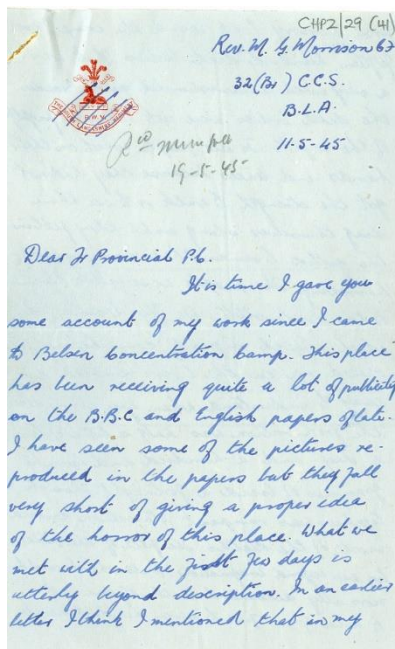 CHP2/29 (41)
Rev. M. G. Morrison CF
32(Br) C.C.S.
B.L.A.
11-5-45
19-5-45
Dear Fr Provincial P.C.
It is time I gave you
some account of my work since I came
to Belsen Concentration Camp. This place
has been receiving quite a lot of publicity
on the B.B.C and English papers of late.
I have seen some of the pictures re-
produced in the papers but they fall
very short of giving a proper idea
of the horror of this place. What we
met with in the first few days is
utterly beyond description. In an earlier
letter I think I mentioned that in my